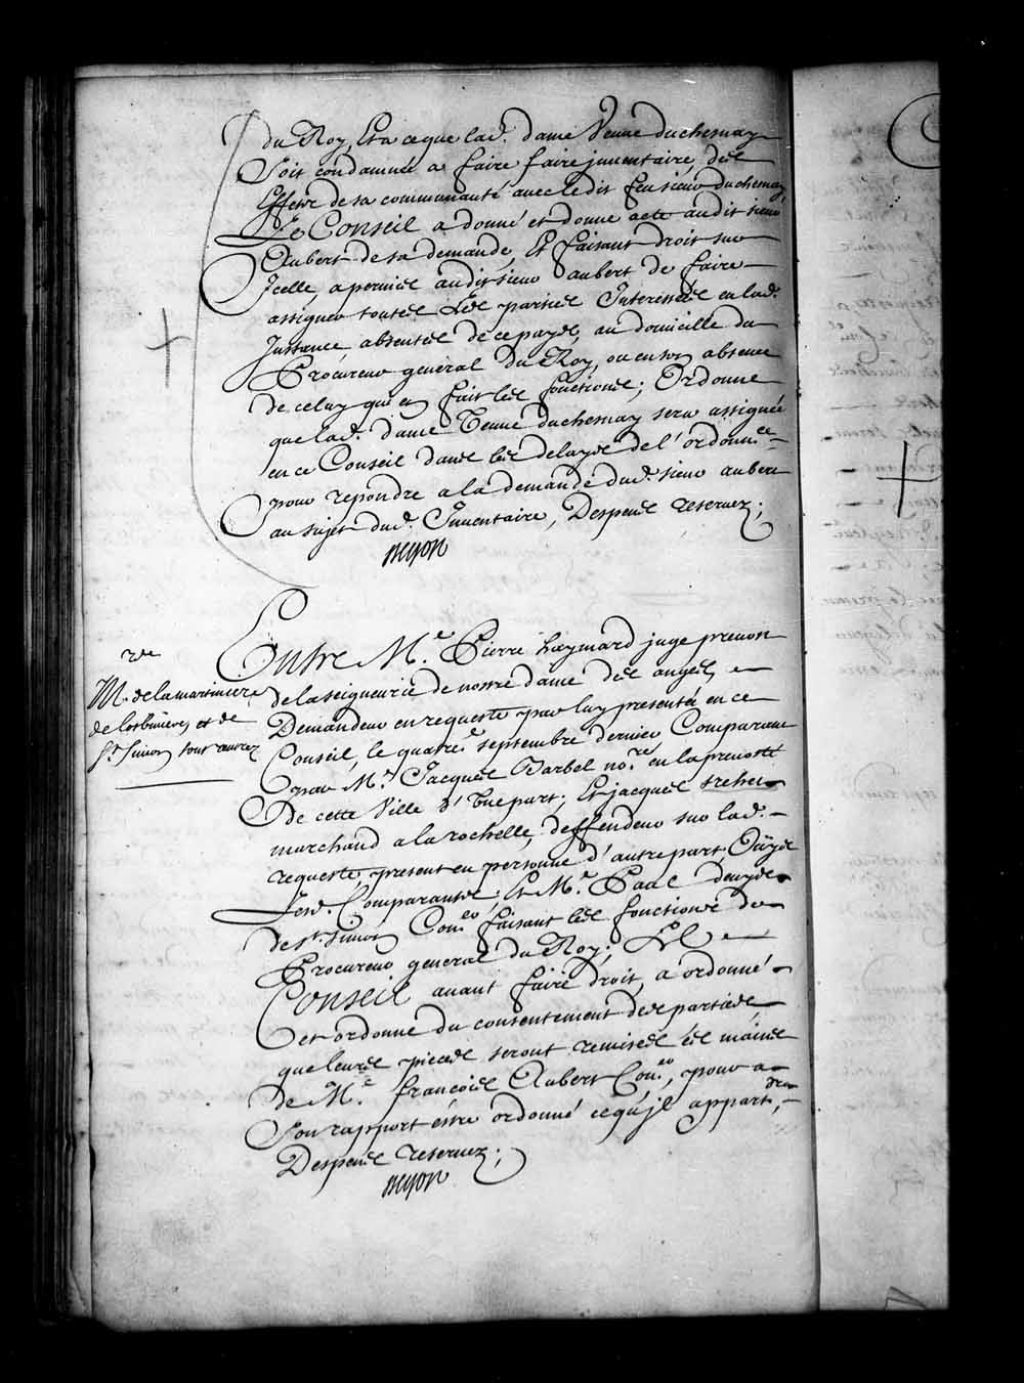 du Roy, Et a ce que lad.e dame Veuve duchesnay
Soit condamnée a faire faire jnventaire des
Effets de sa communauté avec ledit feu sieur duchesnay,
Le Conseil a donné et donne acte audit sieur
Aubert de sa demande, Et faisant droit sur
Jcelle, a permis audit sieur aubert de faire
assigner toutes Les parties Interessées en lad.e
Jnstance, absentes de ce pays, au domicille du
Procureur general du Roy, ou en son absence
de celuy qui en fait les fonctions; Ordonne
que lad.e dame Veuve duchesnay sera assignée
en ce Conseil dans les delays de l'ordonn.ce
pour repondre a la demande dud. sieur aubert
au sujet dud. Jnventaire, Despens reservez;
Begon
Entre M.e Pierre haymard juge prevost
de la seigneurie de nostre dame des anges,
Demandeur en requeste par luy presentée en ce
Conseil, le quatre.e septembre dernier Comparant
par M.e Jacques Barbel no.re en la prevosté
De cette Ville d'Une part; Et jacques
marchand a la rochelle, deffendeur sur lad.e
requeste, present en personne d'autre part; Oüys
Lesd. Comparants; Et M.e Paul denys
de s.t simon Con.er faisant les fonctions de
Procureur general du Roy; LE
Conseil avant faire droit, a ordonné
et ordonne du consentement des parties
que leurs pieces seront remises és mains
de M.e françois Aubert Con.er, pour a
son rapport éstre ordonné ce qu'jl appart.dra,
Despens reservez;
Begon
M.rs de lamartiniere
de Lotbiniere, et de
S.t Simon sont